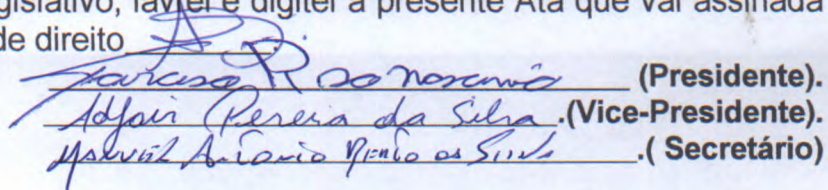 gislativo, lavrei e digitei a presente Ata que vai assinada
de direito
(Presidente).
Adjair Pereira da Silva .(Vice-Presidente).
Manuel Antonio da Silva .( Secretário)